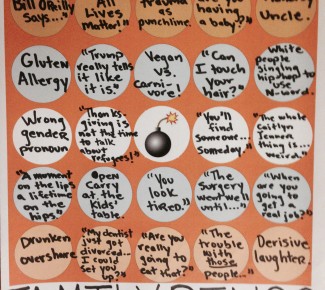 Bill O'Reilly
Says..."
All
Lives
Matter!"
Trauma
as
punchline.
having
a baby?"
Uncle.
Gluten
Allergy
"Trump
really tells
it like
it is."
Vegan
vs.
Carni-
vore!
"Can
I touch
your
hair?"
White
people
singing
hiphop to
use
N-word.
Wrong
gender
pronoun
"Thanks-
giving is
not the time
to talk
about
refugees!"
"You'll
find
someone...
Someday."
"The whole
Caitlyn
Jenner
thing is...
weird."
"A moment
on the lips
a lifetime
on the
hips"
Open
Carry
at the
Kids'
table.
"You
look
tired."
"The
Surgery
went well
until..."
"When
are you
going to
get a
real job?"
Drunken
overshare
"My dentist
just got
divorced...
I could
set you
up?"
"Are you
really
going to
eat that?"
"The
trouble
with
those
people..."
Derisive
laughter.